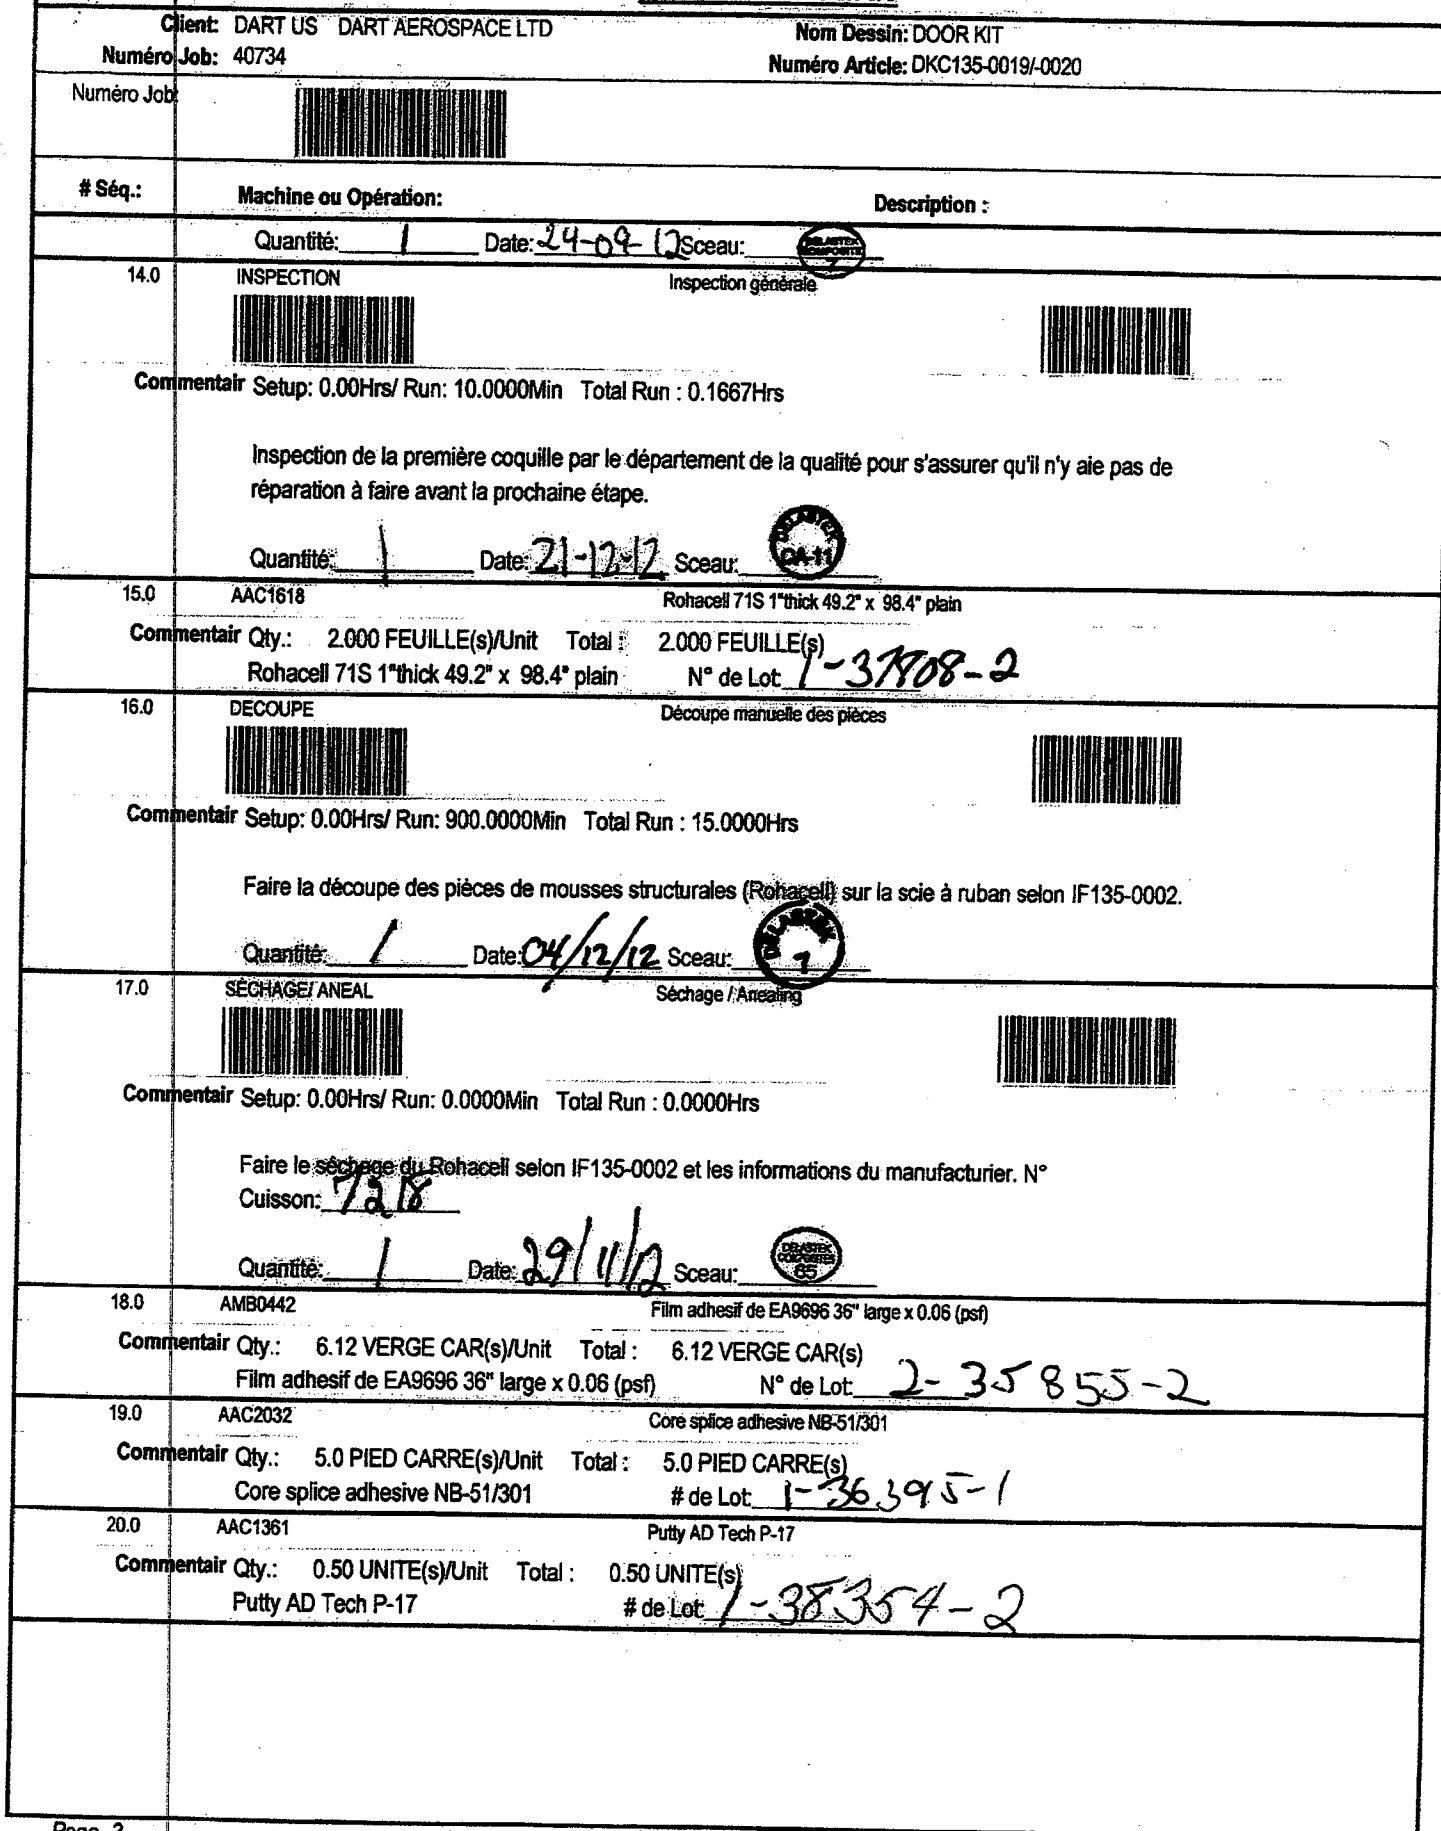 Client: DART US DART AEROSPACE LTD Nom Dessin: DOOR KIT
Numéro Job: 40734 Numéro Article: DKC135-0019/-0020
Numéro Job:
# Séq.: Machine ou Opération: Description :
Quantité: 1 Date: 24-09-12 Sceau: DELASTEK COMPOSITE 7
14.0 INSPECTION Inspection générale
Commentair Setup: 0.00Hrs/ Run: 10.0000Min Total Run : 0.1667Hrs
Inspection de la première coquille par le département de la qualité pour s'assurer qu'il n'y aie pas de
réparation à faire avant la prochaine étape.
Quantité: 1 Date: 21-12-12 Sceau: DELASTEK QA-11
15.0 AAC1618 Rohacell 71S 1"thick 49.2" x 98.4" plain
Commentair Qty.: 2.000 FEUILLE(s)/Unit Total : 2.000 FEUILLE(s)
Rohacell 71S 1"thick 49.2" x 98.4" plain N° de Lot: 1-37808-2
16.0 DECOUPE Découpe manuelle des pièces
Commentair Setup: 0.00Hrs/ Run: 900.0000Min Total Run : 15.0000Hrs
Faire la découpe des pièces de mousses structurales (Rohacell) sur la scie à ruban selon IF135-0002.
Quantité: 1 Date: 04/12/12 Sceau: DELASTEK 7
17.0 SÉCHAGE/ ANEAL Séchage / Anealing
Commentair Setup: 0.00Hrs/ Run: 0.0000Min Total Run : 0.0000Hrs
Faire le séchage du Rohacell selon IF135-0002 et les informations du manufacturier. N°
Cuisson: 7218
Quantité: 1 Date: 29/11/12 Sceau: DELASTEK COMPOSITES 65
18.0 AMB0442 Film adhesif de EA9696 36" large x 0.06 (psf)
Commentair Qty.: 6.12 VERGE CAR(s)/Unit Total : 6.12 VERGE CAR(s)
Film adhesif de EA9696 36" large x 0.06 (psf) N° de Lot: 2-35855-2
19.0 AAC2032 Core splice adhesive NB-51/301
Commentair Qty.: 5.0 PIED CARRE(s)/Unit Total : 5.0 PIED CARRE(s)
Core splice adhesive NB-51/301 # de Lot: 1-36395-1
20.0 AAC1361 Putty AD Tech P-17
Commentair Qty.: 0.50 UNITE(s)/Unit Total : 0.50 UNITE(s)
Putty AD Tech P-17 # de Lot: 1-38354-2